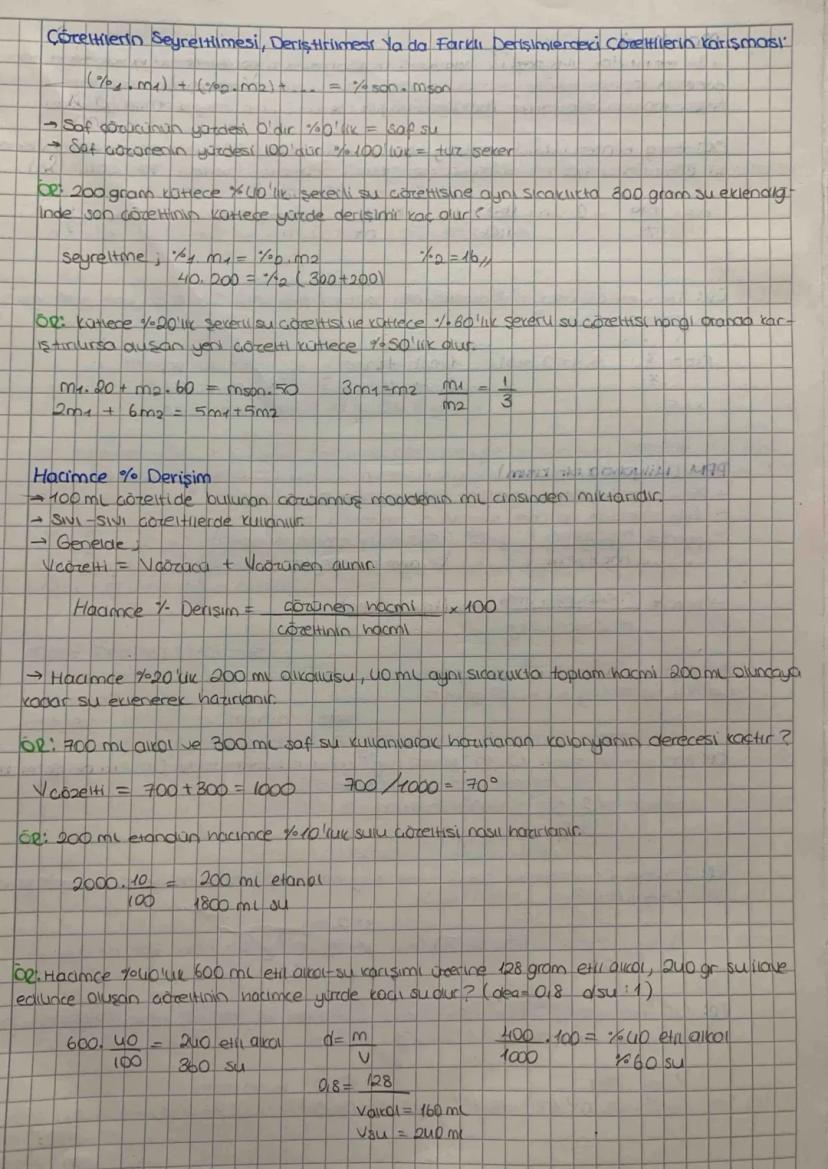 Çözeltilerin Seyreltilmesi, Deriştirilmesi Ya da Farklı Derişimlerdeki Çözeltilerin Karışması
(%1.m1) + (%2.m2) + ... = %son.mson
→ Saf çözücünün yüzdesi 0'dır %0'lık = saf su
→ Saf çözünenin yüzdesi 100'dür %100'lük = tuz şeker
ÖR: 200 gram kütlece %40'lık şekerli su çözeltisine aynı sıcaklıkta 300 gram su eklendiğ-
inde son çözeltinin kütlece yüzde derişimi kaç olur?
Seyreltme; %1.m1 = %2.m2 %2=16,,
40.200 = %2 (300+200)
ÖR: Kütlece %20'lik şekerli su çözeltisi ve kütlece %60'lık şekerli su çözeltisi hangi oranda kar-
ıştırılırsa oluşan yeni çözelti kütlece %50'lik olur.
m1.20 + m2.60 = mson.50 3m1=m2 m1/m2 = 1/3
2m1 + 6m2 = 5m1+5m2
Hacimce % Derişim
→ 100 mL çözeltide bulunan çözünmüş maddenin mL cinsinden miktarıdır.
→ Sıvı-sıvı çözeltilerde kullanılır.
→ Genelde;
Vçözelti = Vçözücü + Vçözünen alınır.
Hacimce % Derişim = çözünen hacmi / çözeltinin hacmi × 100
→ Hacimce %20'lik 200 mL alkollüsu, 40 mL aynı sıcaklıkta toplam hacmi 200 mL oluncaya
kadar su eklenerek hazırlanır.
ÖR: 700 mL alkol ve 300 mL saf su kullanılarak hazırlanan kolonyanın derecesi kaçtır?
Vçözelti = 700+300 = 1000 700/1000 = 70°
ÖR: 200 mL etanolün hacimce %10'luk sulu çözeltisi nasıl hazırlanır.
2000.10/100 = 200 mL etanol
1800 mL su
ÖR: Hacimce %40'lık 600 mL etil alkol-su karışımı üzerine 128 gram etil alkol, 240 gr su ilave
edilince oluşan çözeltinin hacimce yüzde kaçı sudur? (dea=0,8 dsu:1)
600.40/100 = 240 etil alkol d=m/v 400/1000.100 = %40 etil alkol
360 su %60 su
0,8 = 128
Valkol = 160 mL
Vsu = 240 mL